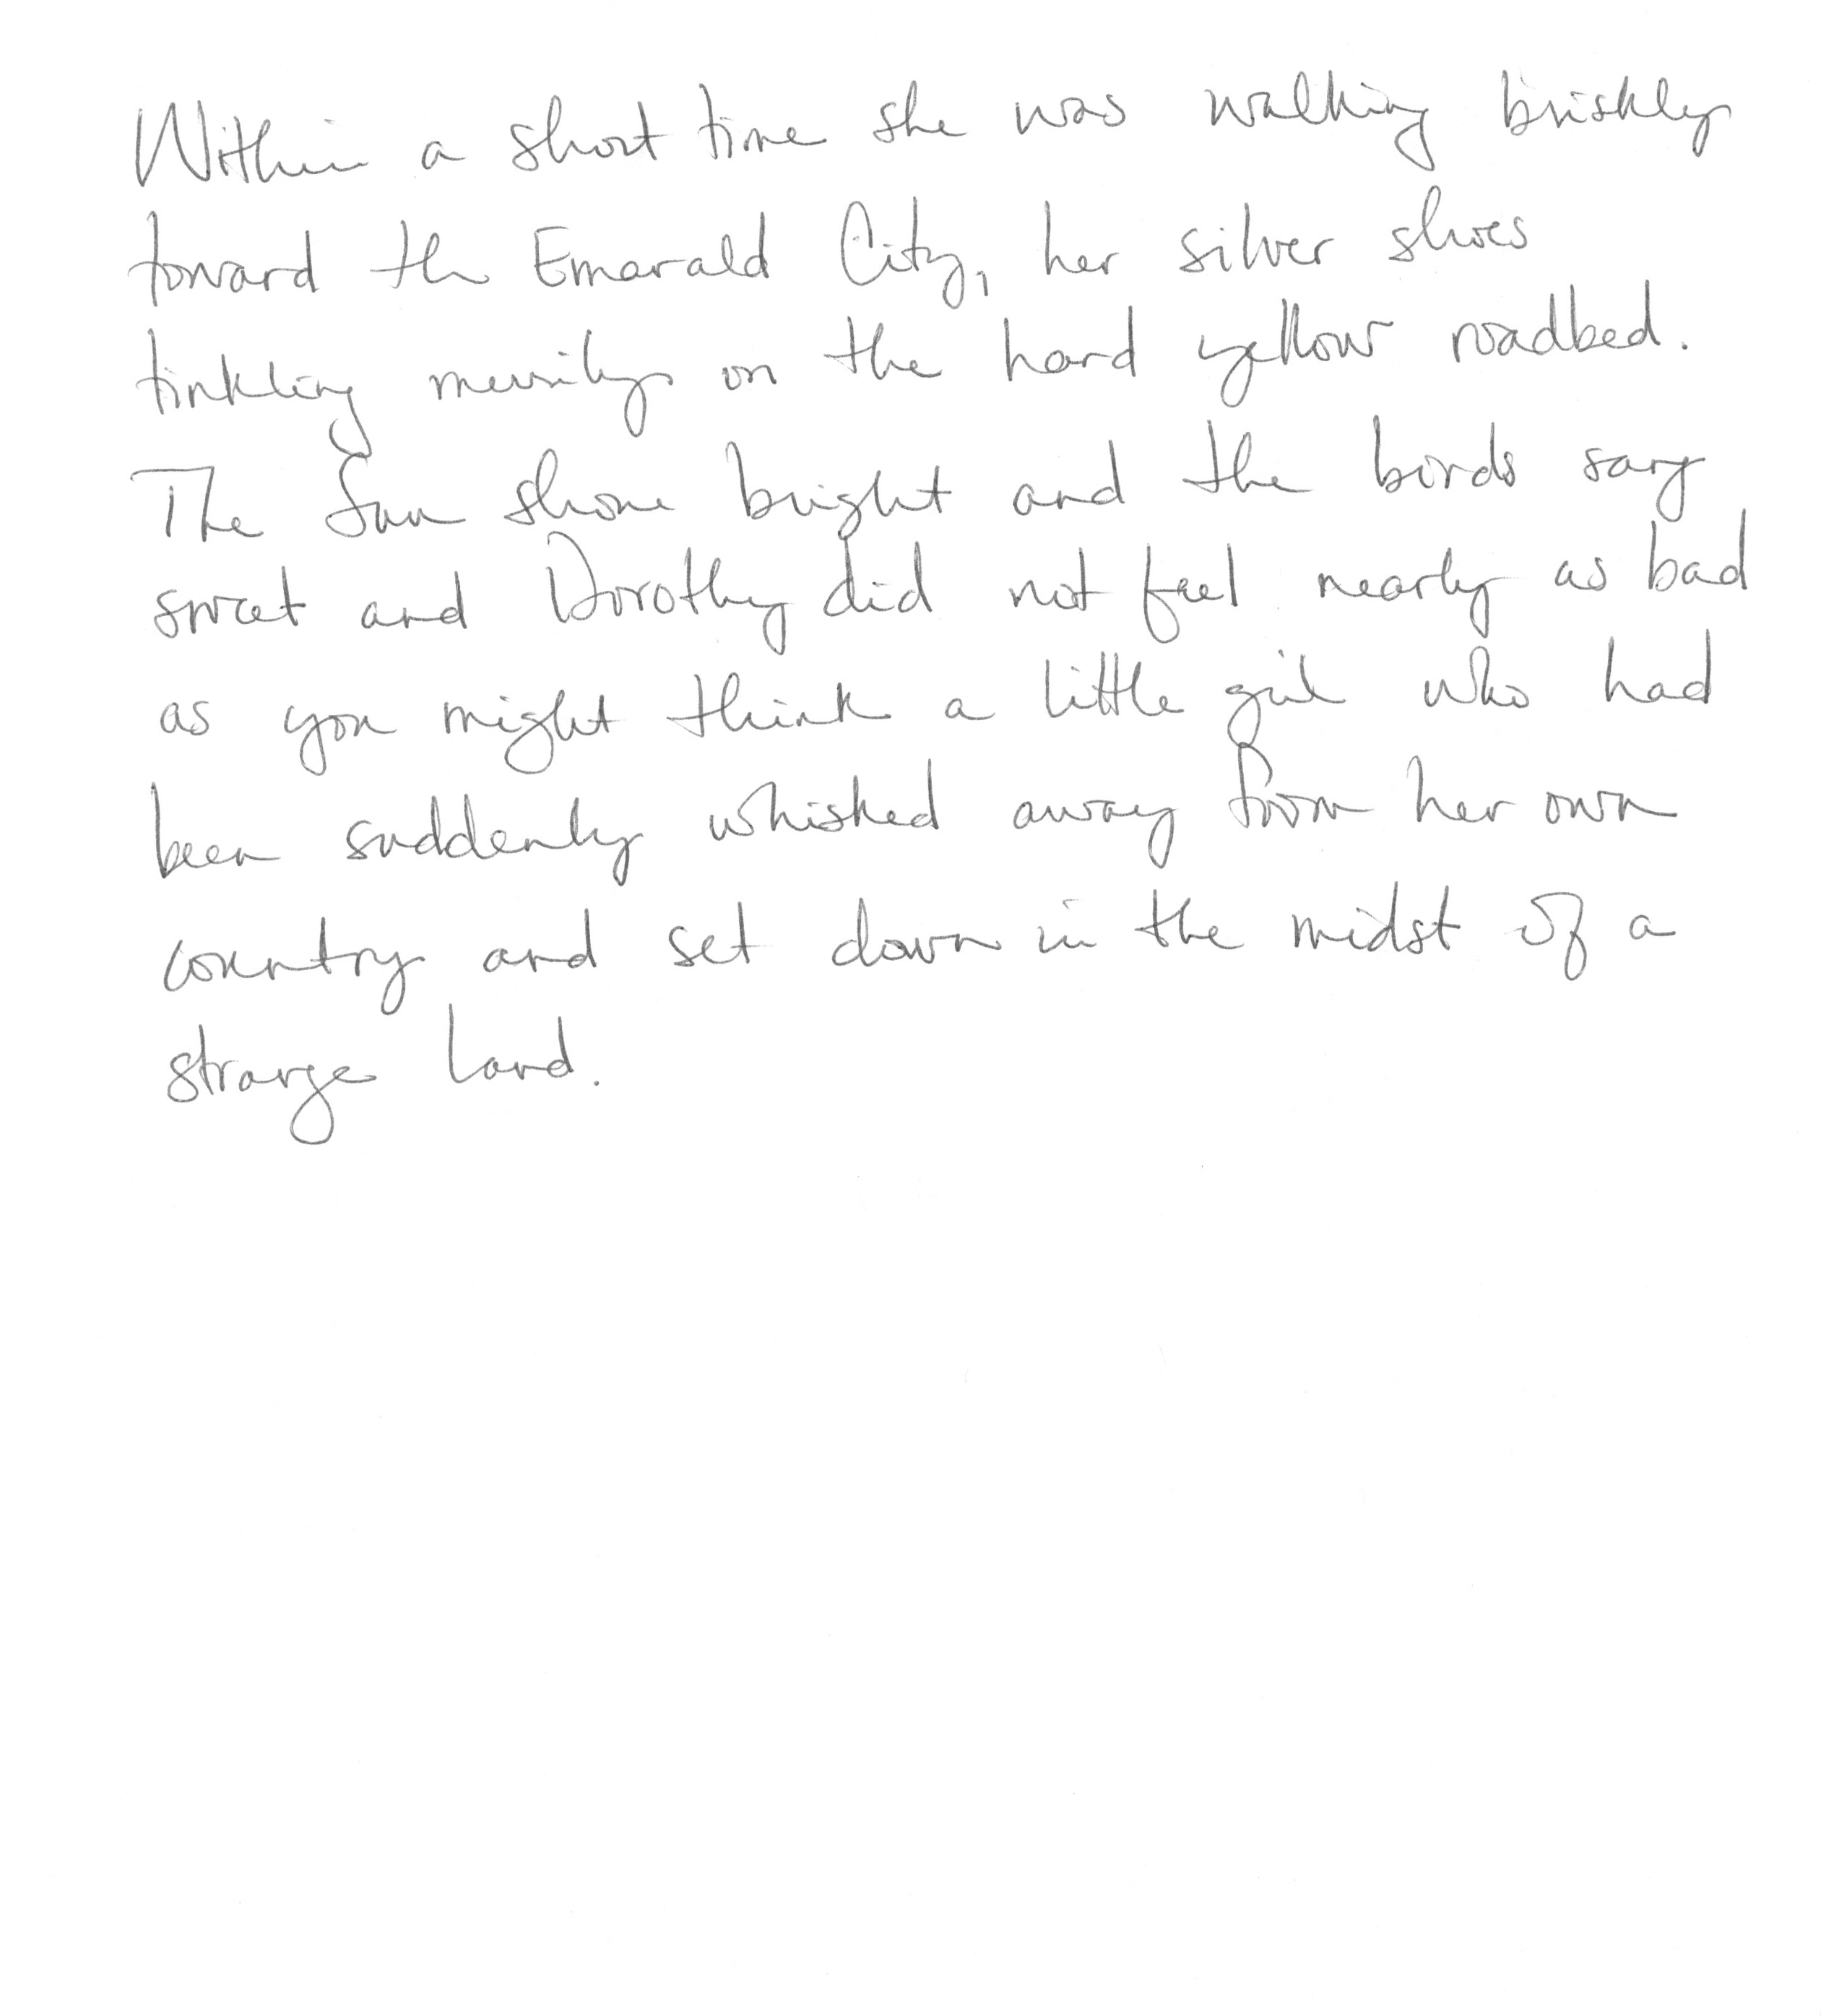 Within a short time she was walking briskly
toward the Emerald City, her silver shoes
tinkling merrily on the hard yellow roadbed.
The Sun shone bright and the birds sang
sweet and Dorothy did not feel nearly as bad
as you might think a little girl who had
been suddenly whisked away from her own
country and set down in the midst of a
strange land.